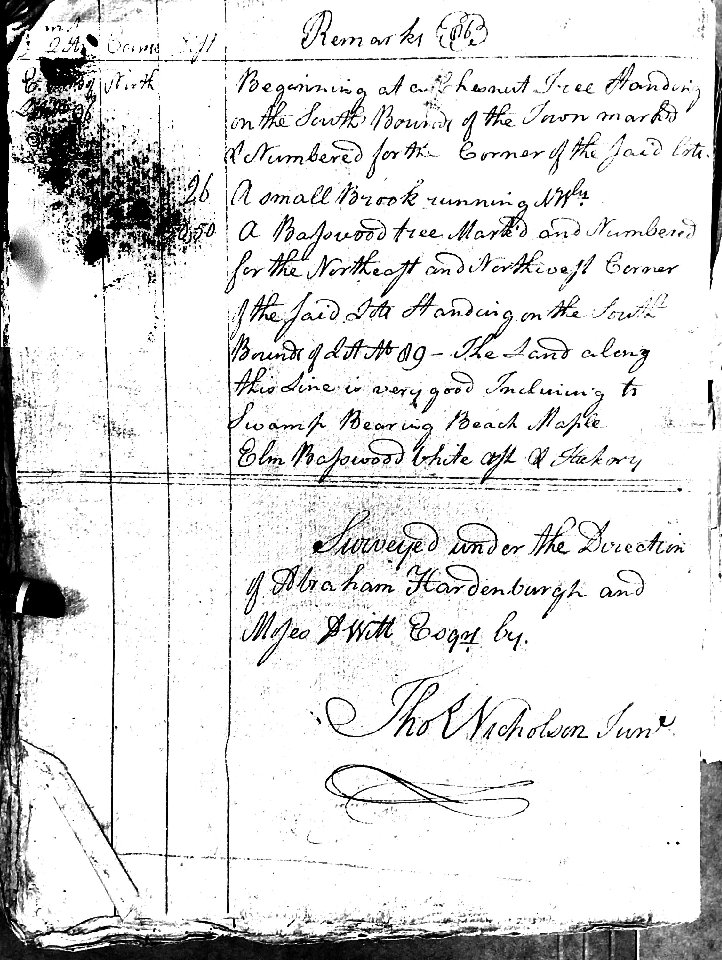 Remarks 86
Beginning at a Chesnut Tree Standing
North
on the South Bounds of the Town mark'd
& Numbered for the Corner of the said Lots
26 A small Brook running NWly
50 A Basswood tree Mark'd and Numbered
for the Northeast and Northwest Corner
of the said Lots Standing on the South
Bounds of Lot No 89 - The Land along
this Line is very good Inclining to
Swamp Bearing Beach Maple
Elm Basswood White ash & Hickory
Surveyed under the Direction
of Abraham Hardenburgh and
Moses D Witt Esqrs by.
Thos Nicholson Junr